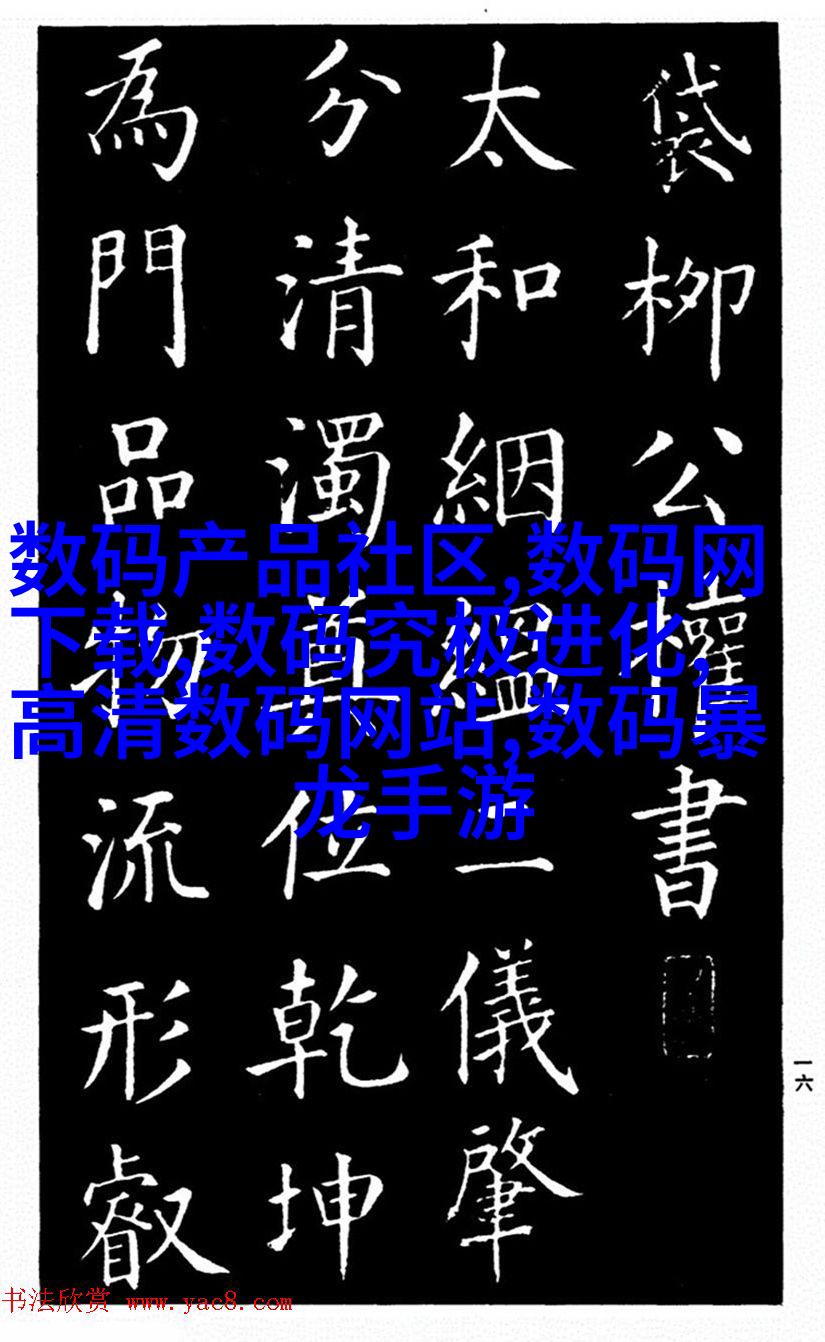 袋柳公權書
太和絪縕二儀肇
分清濁奠位乾坤
為門品物流形叡
数码产品社区,数码网
下载,数码究极进化,
高清数码网站,数码暴
龙手游
一六
书法欣赏 www.yac8.com